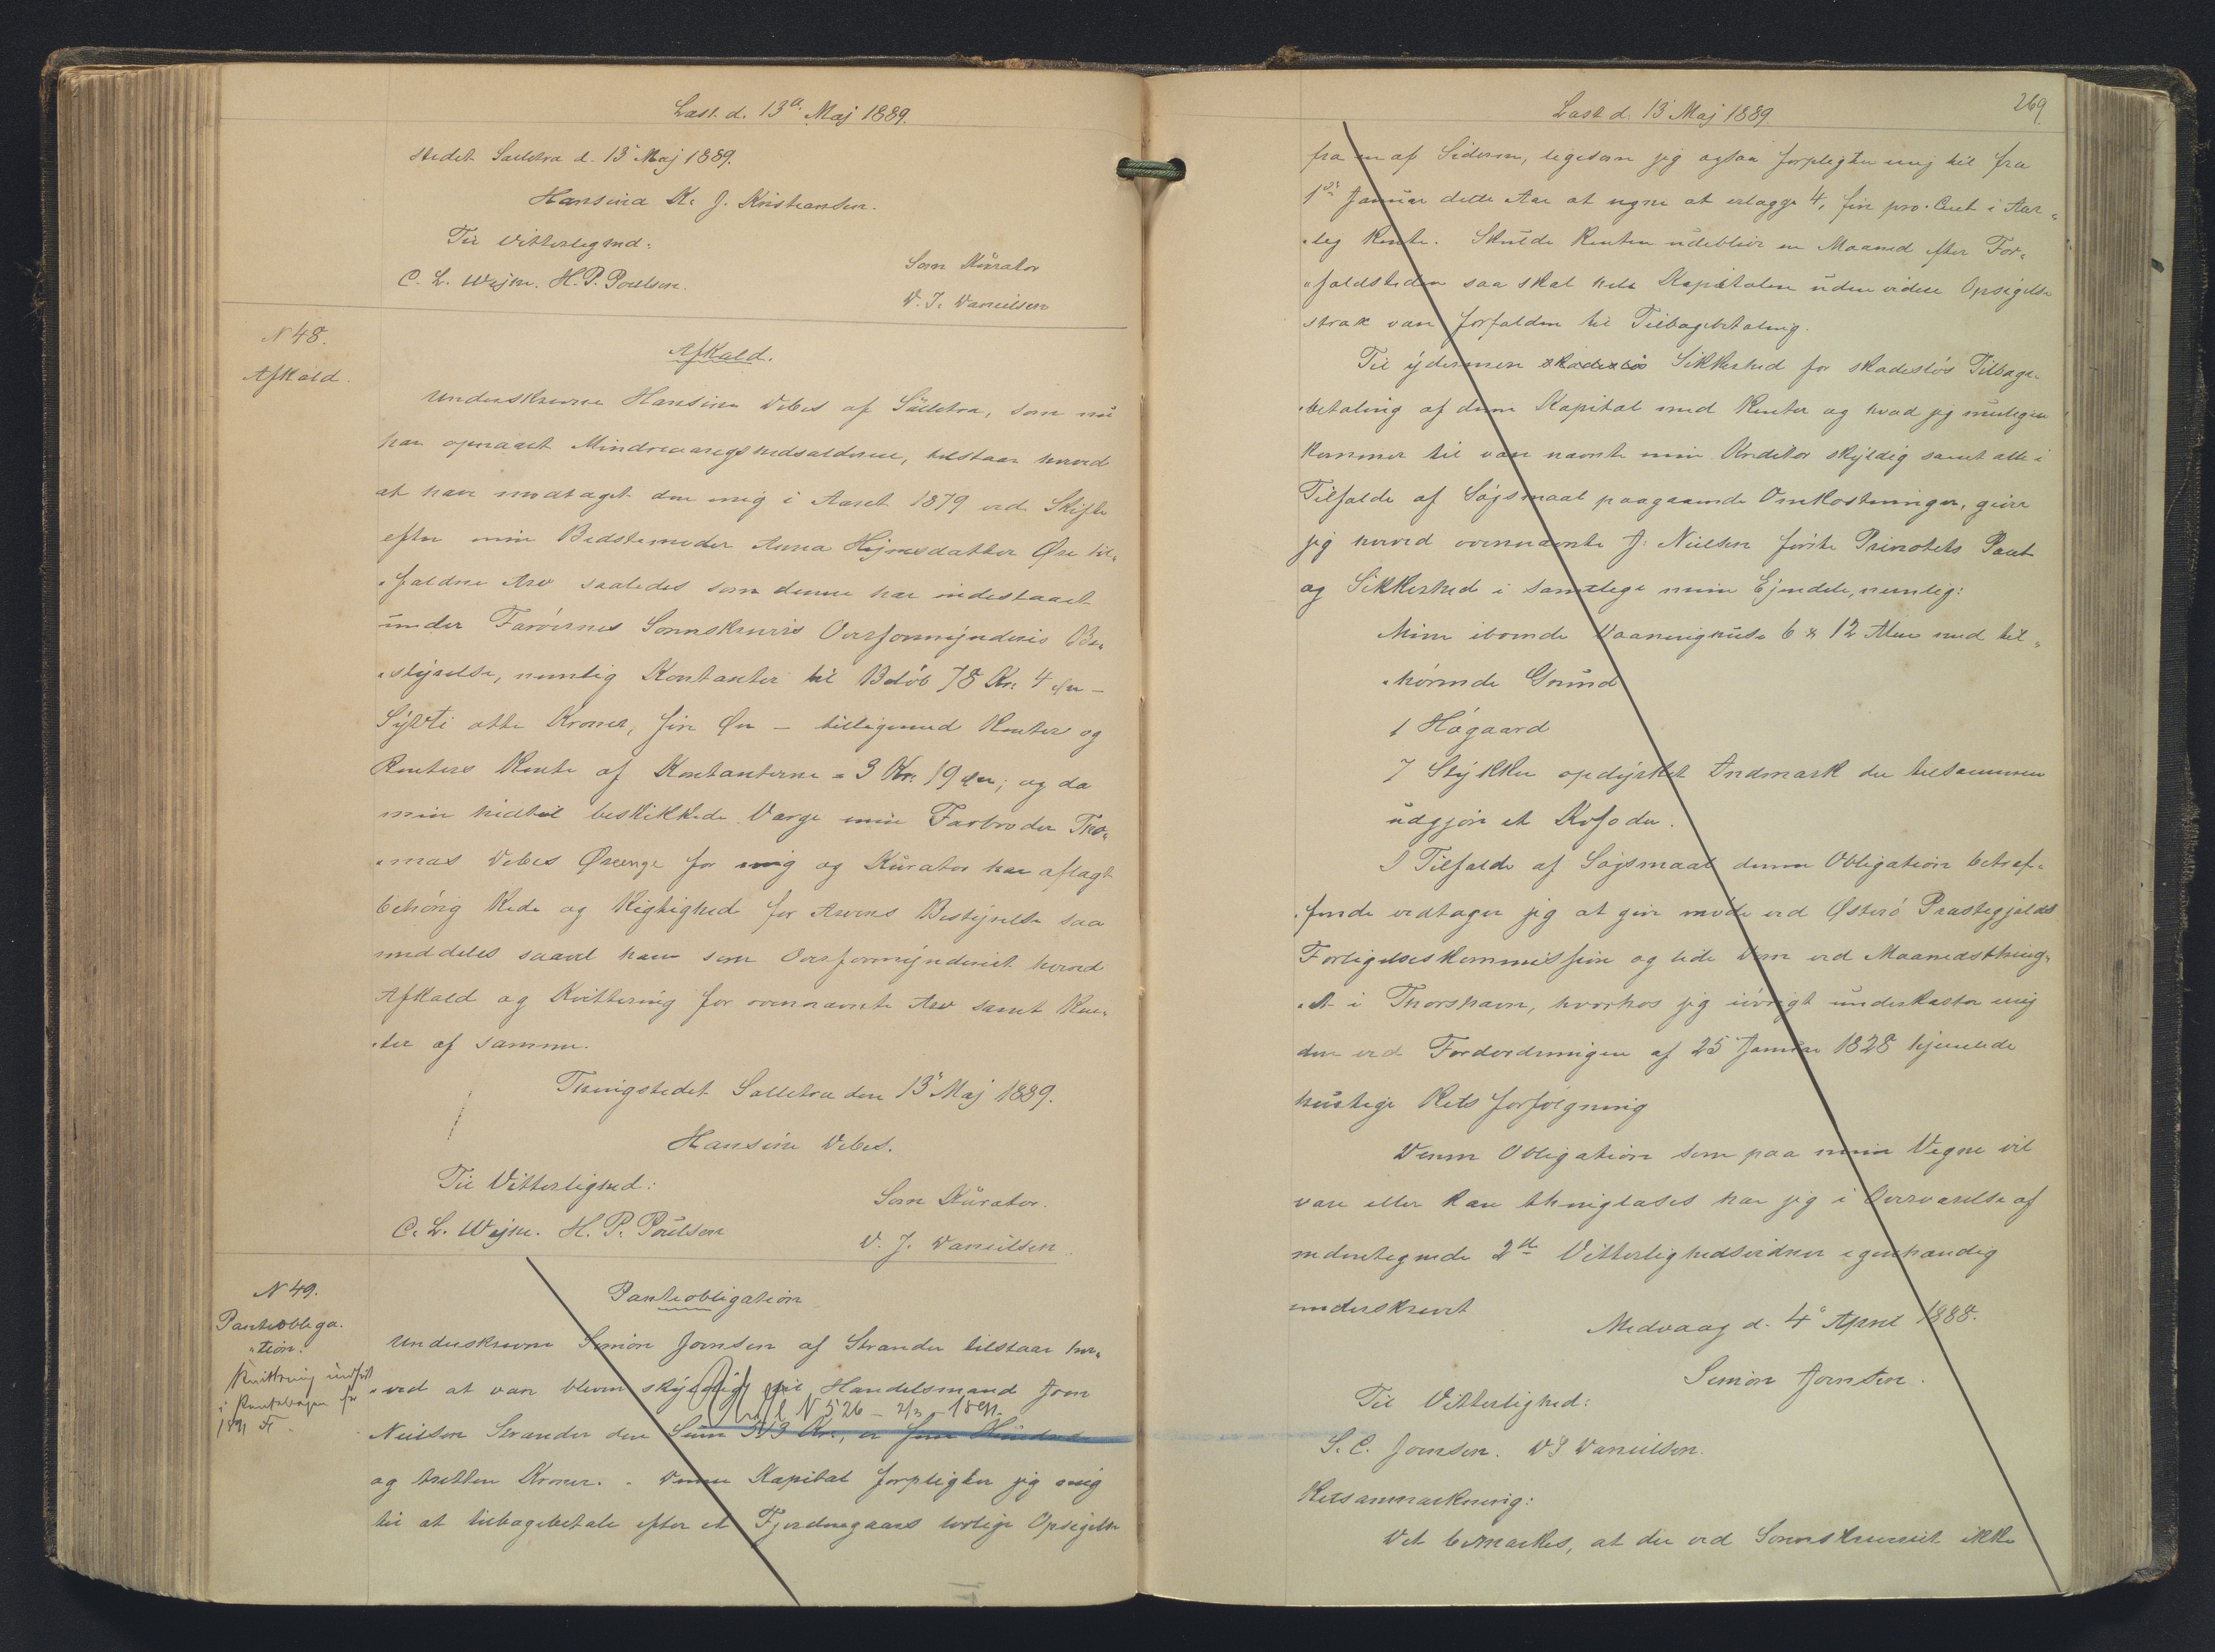 Læst d. 13de Maj 1889.
stedet Salletra d. 13' Maj 1889.
Hansina K. J. Kristiansen.
Til Vitterlighed:
Som Kurator
C. L. Wejhe. H. P. Poulsen.
D. J. Danielsen
N 48.
Afkald.
Afkald.
Underskrevne Hansine Debes af Salletra, som nu
har opnaaet Mindreaarigshedsalderne, tilstaar herved
at have modtaget den mig i Aaret 1879 ved Skifte
efter min Bedstemoder Anna Hejnesdatter Øre til-
faldne Arv saaledes som denne har indestaaet
under Færøernes Sorenskriveris Overformynderis Be-
styrelse, nemlig Kontanter til Beløb 78 Kr. 4 Øre –
Sytti otte Kroner, fire Øre – tilligemed Renter og
Renters Rente af Kontanterne = 3 Kr. 19 Øre; og da
min hidtil beskikkede Værge min Farbroder Tho-
mas Debes Øreenge for mig og Kurator har aflagt
behørig Rede og Rigtighed for Arvens Bestyrelse saa
meddeles saavel ham som Overformynderiet herved
Afkald og Kvittering for ovennævnte Arv samt Ren-
ter af samme.
Thingstedet Salletra den 13' Maj 1889.
Hansine Debes.
Til Vitterlighed:
Som Kurator.
C. L. Wejhe. H. P. Poulsen
D. J. Danielsen
N 49.
Panteobliga-
tion.
Kvittering indført
i Pantebogen for
1891
Panteobligation
Underskrevne Simon Joensen af Strander tilstaar her-
ved at være bleven skyldig til Handelsmand Joen
Aflyst N 526 – 2/3 – 1891.
Nielsen Strander den Sum 513 Kr., er fem Hundrede
og tretten Kroner. – Denne Kapital forpligter jeg mig
til at tilbagebetale efter et Fjerdingaars lovlige Opsigelse
Læst d. 13' Maj 1889.
269
fra en af Siderne, ligesom jeg ogsaa forpligter mig til fra
1ste Januar dette Aar at regne at erlægge 4, fire pro Cent i Aar-
lig Rente. Skulde Renten udeblive en Maaned efter For-
faldstiden saa skal hele Kapitalen uden videre Opsigelse
strax være forfalden til Tilbagebetaling.
Til ydermere skadesløs Sikkerhed for skadesløs Tilbage-
betaling af denne Kapital med Renter og hvad jeg muligen
kommer til være nævnte min Kreditor skyldig samt alle i
Tilfælde af Søgsmaal paagaaende Omkostninger, giver
jeg herved ovennævnte J. Nielsen første Prioritets Pant
og Sikkerhed i samtlige mine Ejendele, nemlig:
Mine iboende Vaaningshuse 6 x 12 Alen med til-
hørende Grund
1 Høgaard
7 Stykker opdyrket Indmark der tilsammen
udgjøre et Kofoder.
I Tilfælde af Søgsmaal denne Obligation betref-
fende vedtager jeg at give møde ved Østerø Præstegjælds
Forligelseskommission og lide Dom ved Maanedsthing-
et i Thorshavn, hvorhos jeg iøvrigt underkaster mig
den ved Forordningen af 25 Januar 1828 hjemlede
hurtige Rets forfølgning
Denne Obligation som paa mine Vegne vil
være eller kan thinglæses har jeg i Overværelse af
nedentegnede 2de Vitterlighedsvidner egenhændig
underskrevet
Medvaag d. 4' April 1888.
Simon Joensen.
Til Vitterlighed:
S. C. Joensen. D J Danielsen.
Retsanmærkning:
Det bemærkes, at der ved Sorenskriveriet ikke